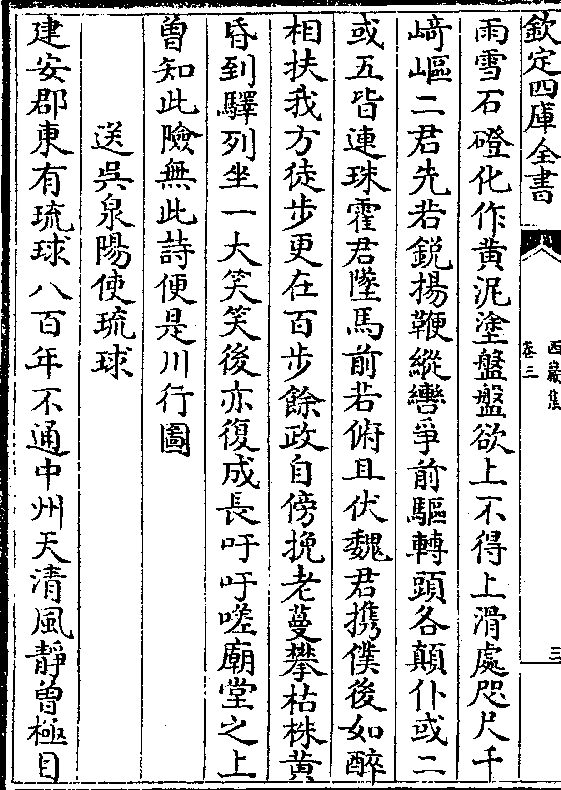 欽定四庫全書
西巖集
卷三
三
雨雪石磴化作黄泥塗盤盤欲上不得上滑處咫尺千
﨑嶇二君先若鋭揚鞭縱轡爭前驅轉頭各顛仆或二
或五皆連珠霍君墜馬前若俯且伏魏君擕僕後如醉
相扶我方徒步更在百步餘政自傍挽老蔓攀枯株黄
昏到驛列坐一大笑笑後亦復成長吁吁嗟廟堂之上
曽知此險無此詩便是川行圖
送呉泉陽使琉球
建安郡東有琉球八百年不通中州天清風靜曽極目